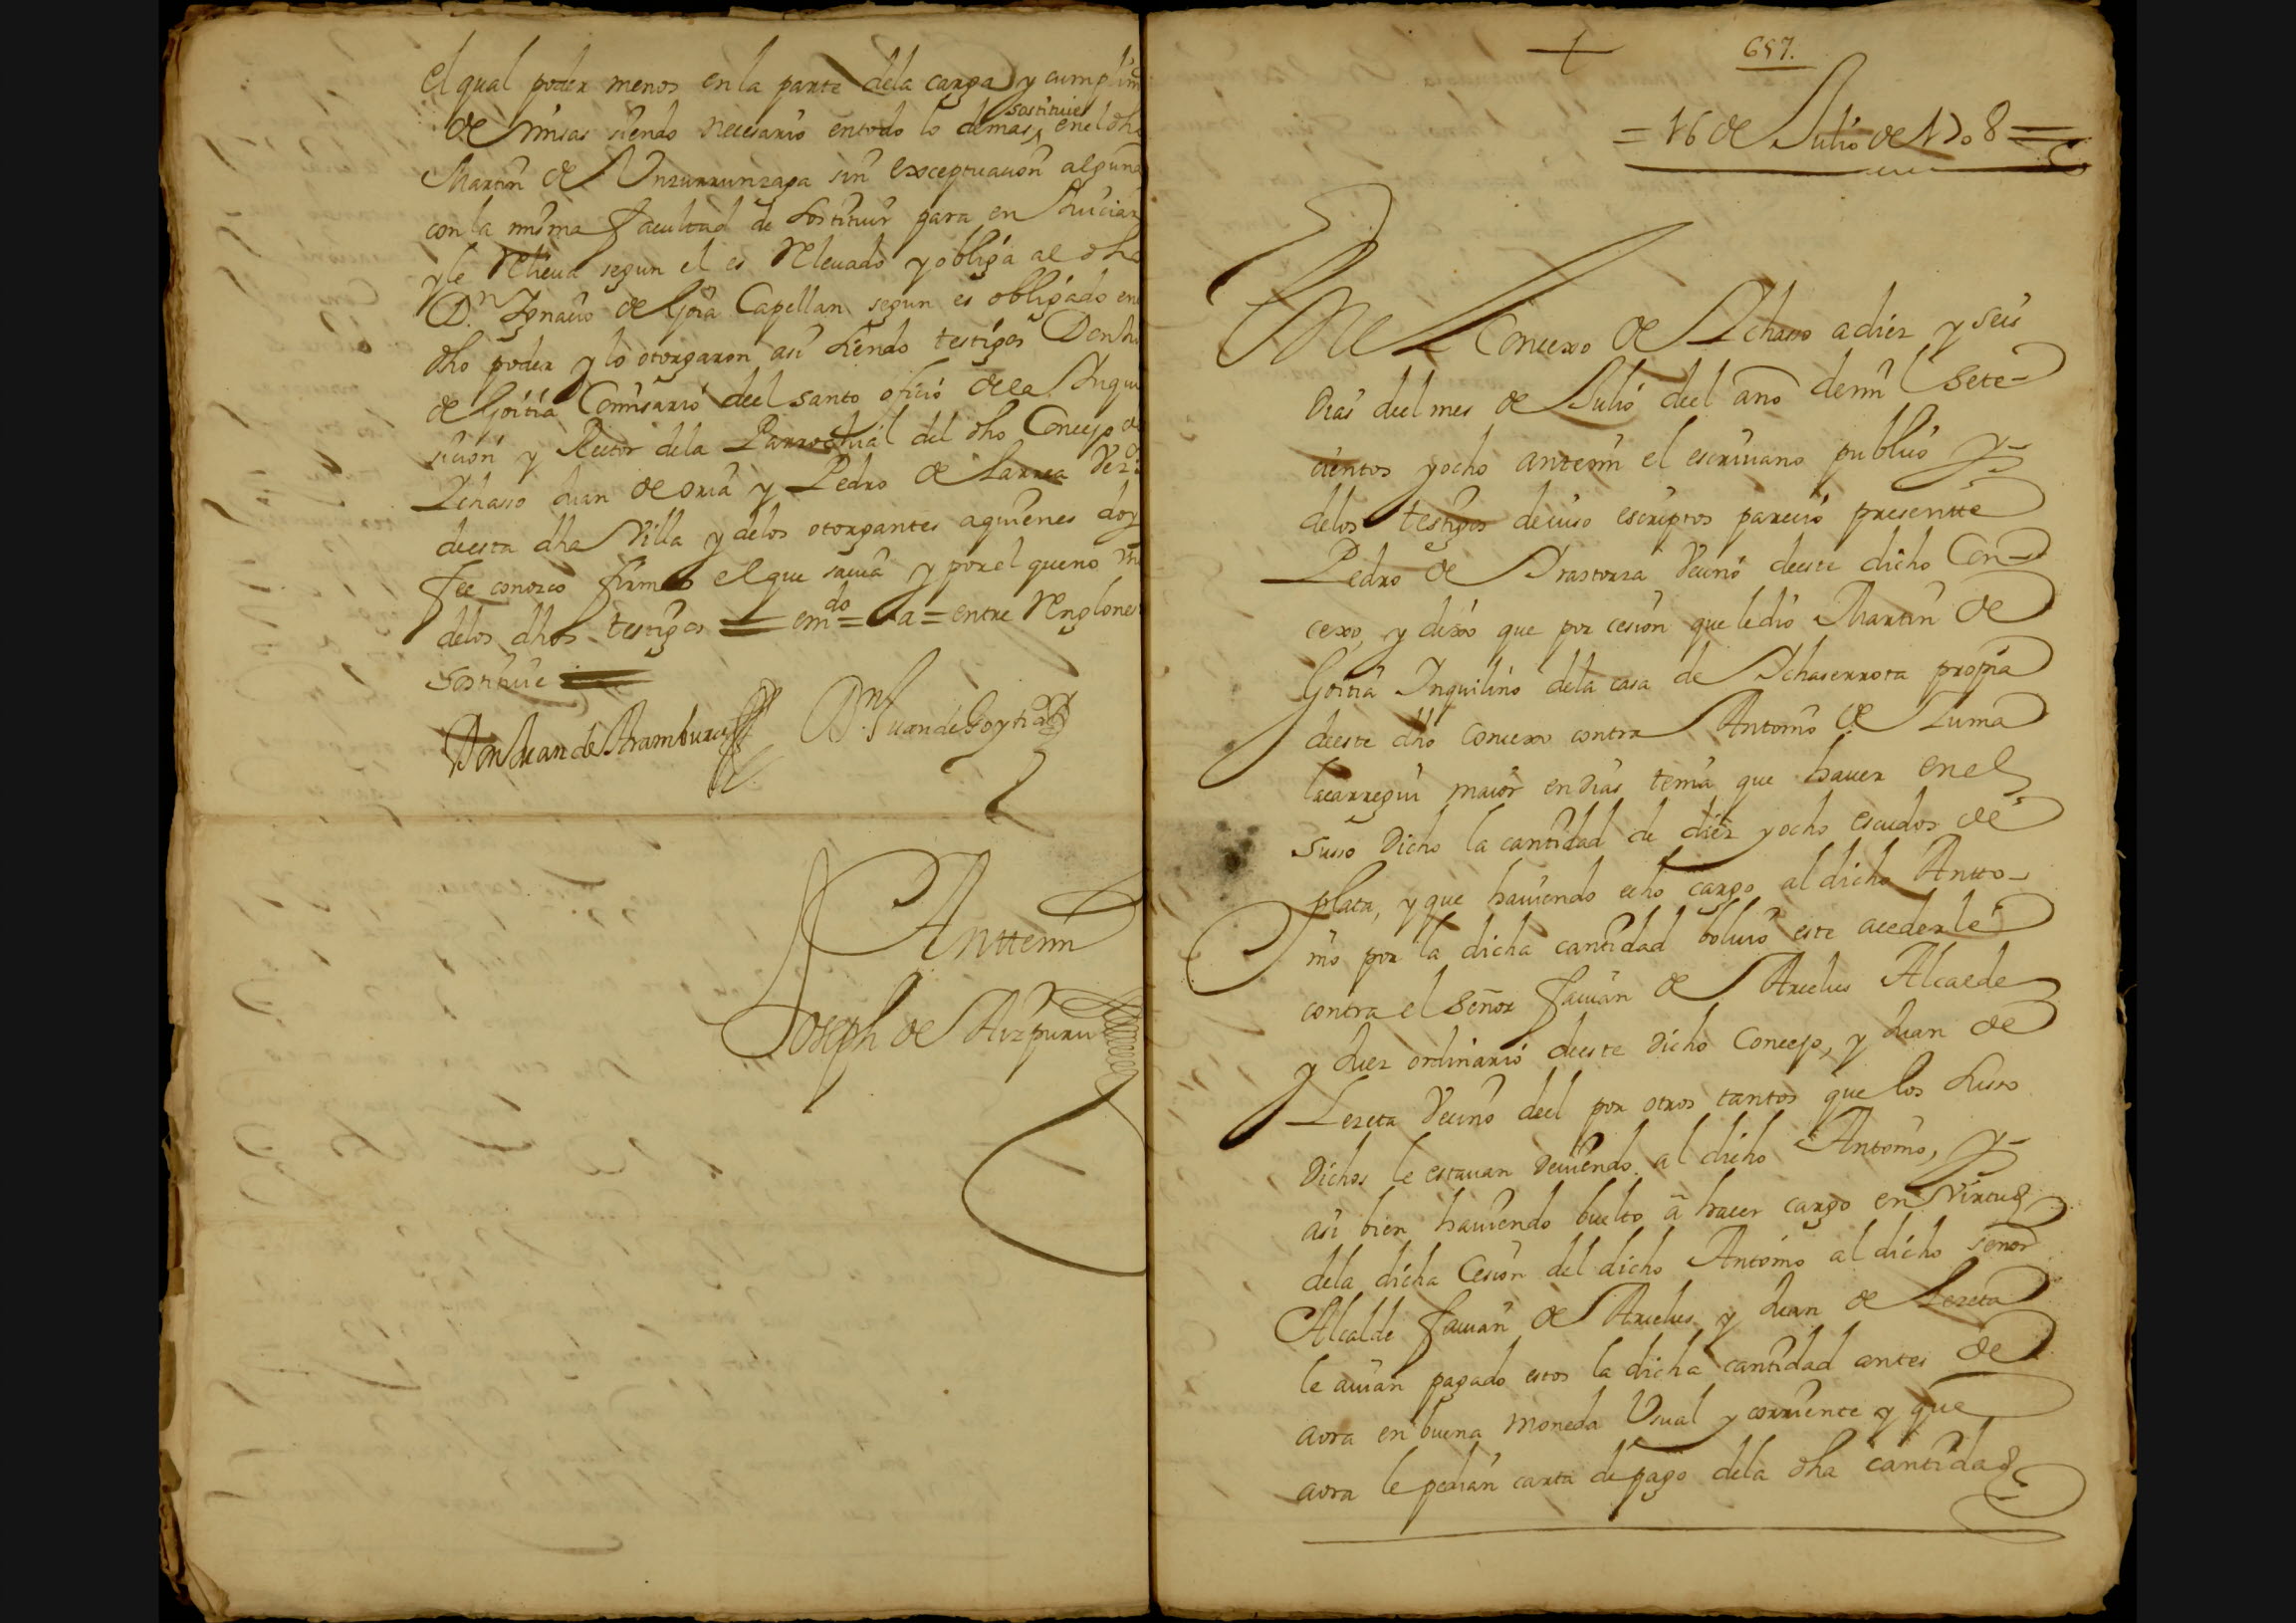 el qual poder menos en la parte dela carga y cumplim
de misas siendo necesario entodo lo demas sostituie enel dho
Martin de Unzurrunzaga sin exceptuacion alguna
con la misma facultad de sostituir para en Juiciar
y le relieua segun el es releuado y obliga al dho
D.n Ignacio de Goia Capellan segun es obligado en
dho poder y lo otorgaron asi siendo testigos Don Ju
de Goitia Comisario deel santo oficio dela Inqui
sicion y Rector dela Parrochial del dho Concejo de
Ichasso Juan de oria y Pedro de Larrea Vez.os
deesta dha Villa y delos otorgantes aquienes doy
fee conozco firmo el que sauia y por el que no
delos dhos testigos = em.do = a = entre renglones
sostituie =
Don Juan de Aramburu
D.n Juan de Goytia
Anttemi
Joseph de Aizpuru
657.
= 16 de Julio de 1708 =
Enel Concexo de Ichasso a diez y seis
dias deel mes de Julio deel año demil sete-
cientos y ocho antemi el escriuano publico y
delos testigos deiuso escriptos parecio presentte
Pedro de Irastorza Vecino deeste dicho Con-
cexo, y dixo que por cesion que le dio Martin de
Goitia Inquilino dela casa de Ichaserrota propia
deeste dho concexo contra Antonio de Zuma
lacarregui maior en dias tenia que hauer enel
susso dicho la cantidad de diez y ocho escudos de
plata, y que hauiendo echo cargo al dicho Antto-
nio por la dicha cantidad boluio este acederle
contra el señor fauian de Arcelus Alcalde
y Juez ordinario deeste dicho Concejo, y Juan de
Lezeta Vecino deel por otros tantos que los susso
dichos le estauan deuiendo al dicho Antonio, y
asi bien hauiendo buelto a hacer cargo en virtud
dela dicha Cesion del dicho Antonio al dicho señor
Alcalde fauian de Arcelus y Juan de Lezeta
le auian pagado estos la dicha cantidad antes de
aora en buena moneda Usual y corriente y que
aora le pedian carta de pago dela dha cantidad